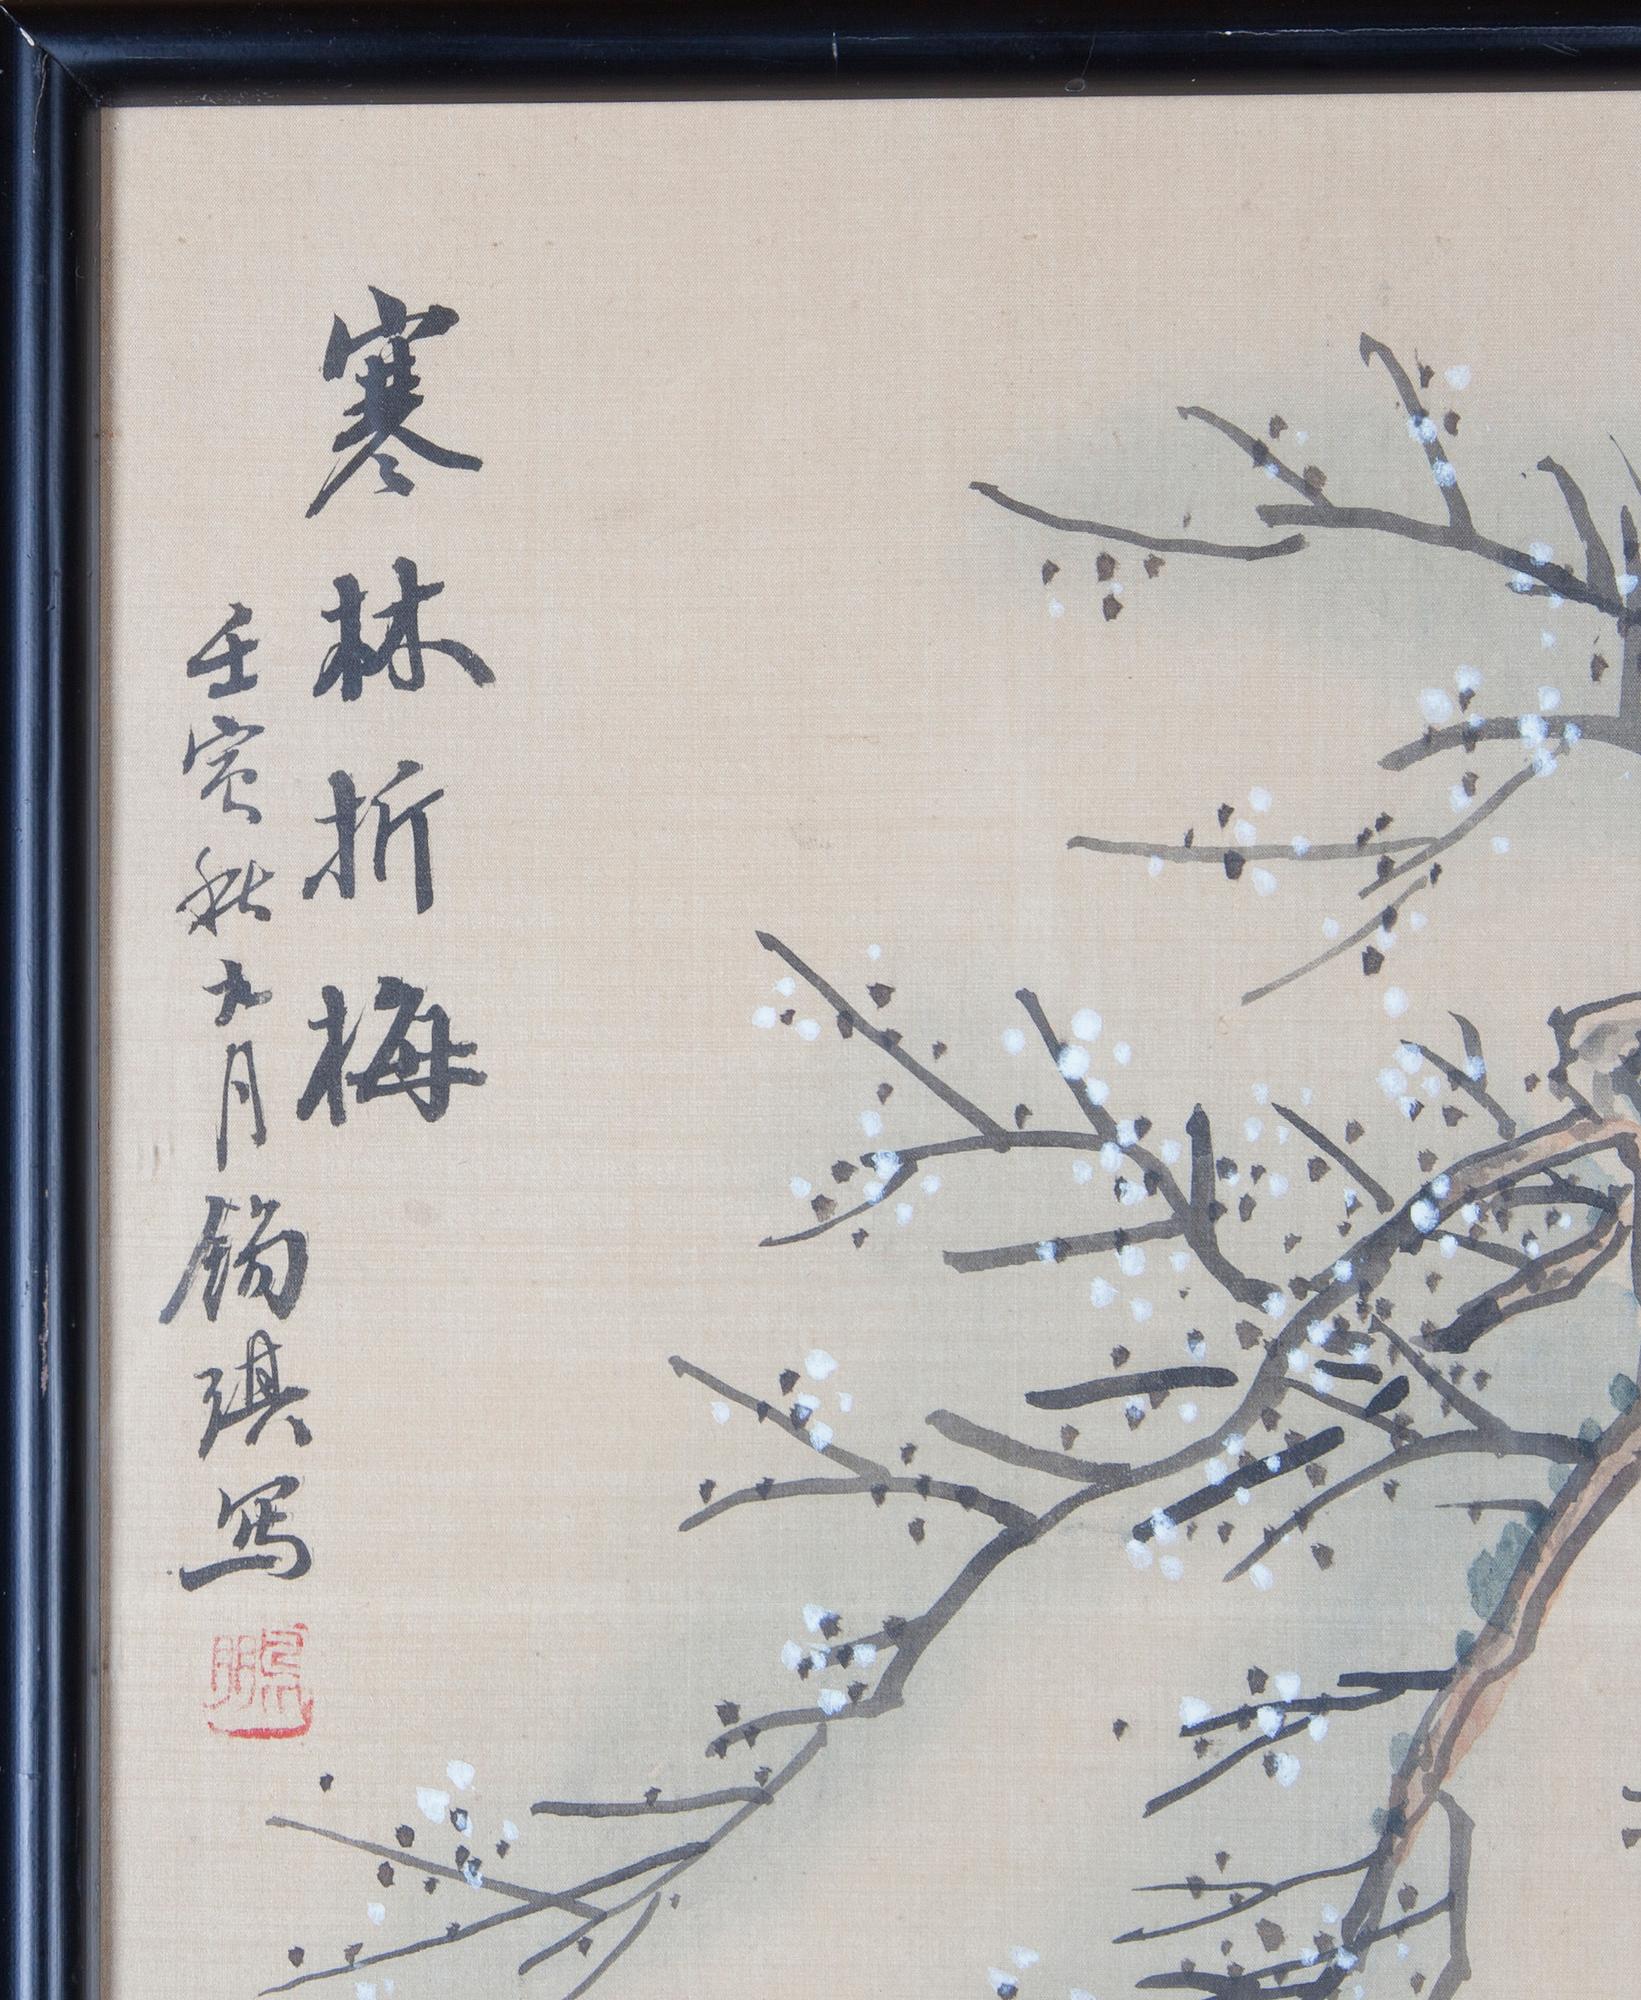 寒林折梅
壬寅秋九月錫琪写
鵬